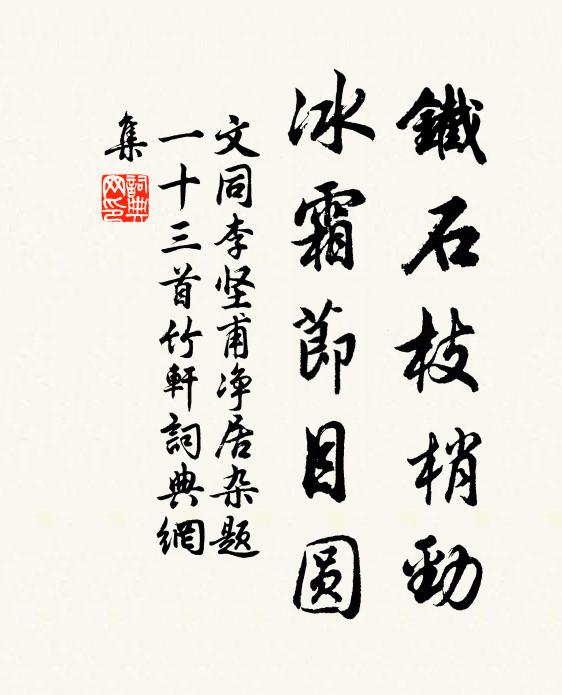 鐵石枝梢勁
冰霜節目圆
文同李坚甫净居杂题
一十三首竹軒詞典網
集
詞典網印